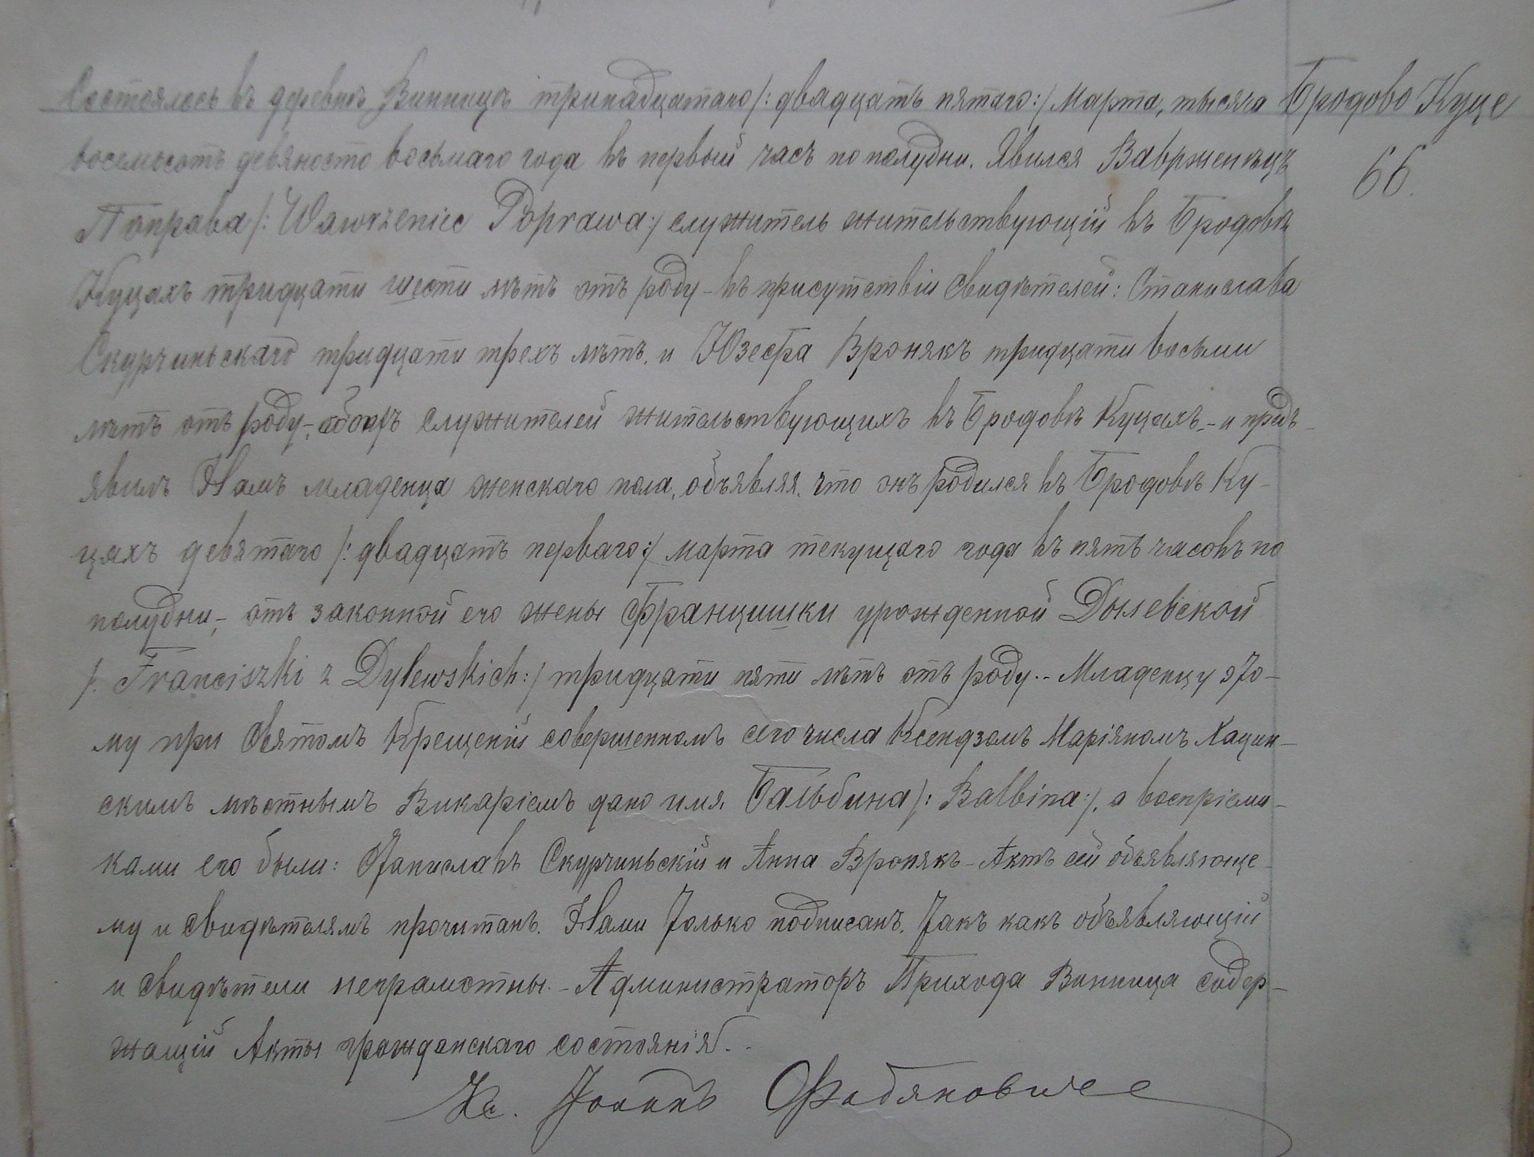 Состоялось въ деревнѣ Винницѣ тринадцатаго /: двадцать пятаго :/ Марта, тысяча
Бродово Куце
66.
восемьсотъ девяносто восьмаго года въ первый часъ по полудни. Явился Ваврженецъ
Поправа /: Wawrzeniec Poprawa :/ служитель жительствующій въ Бродовѣ
Куцахъ тридцати шести лѣтъ отъ роду - въ присутствіи свидѣтелей: Станислава
Скурчиньскаго тридцати трехъ лѣтъ, и Юзефа Вронякъ тридцати восьми
лѣтъ отъ роду, - обоихъ служителей жительствующихъ въ Бродовѣ Куцахъ, - и предъ-
явилъ Намъ младенца женскаго пола, объявляя, что онъ родился въ Бродовѣ Ку-
цахъ девятаго /: двадцать перваго :/ марта текущаго года въ пять часовъ по
полудни, - отъ законной его жены Францишки урожденной Дылевской
/: Franciszki z Dylewskich :/ тридцати пяти лѣтъ отъ роду. - Младенцу это-
му при Святомъ Крещеніи совершенномъ сего числа Ксендзомъ Маріяномъ
скимъ мѣстнымъ Викаріемъ дано имя Бальбина /: Balbina :/, а воспріемни-
ками его были: Станиславъ Скурчиньскій и Анна Вронякъ - Актъ сей объявляюще-
му и свидѣтелямъ прочитанъ. Нами только подписанъ. Такъ какъ объявляющій
и свидѣтели неграмотны. - Администраторъ Прихода Винница содер-
жащій Акты гражданскаго состоянія. -
Кс. Іоаннъ